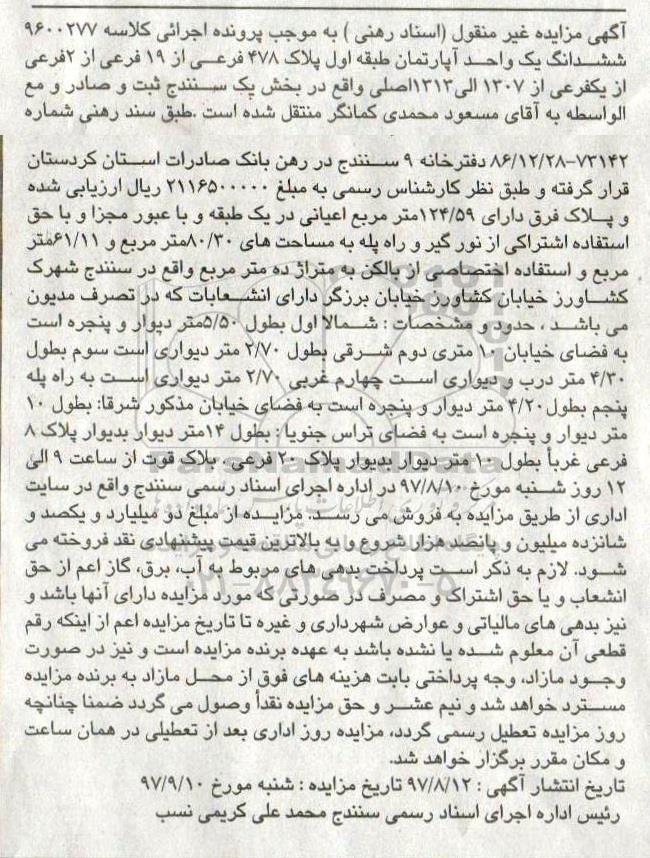 آگهی مزایده غیر منقول (اسناد رهنی ) به موجب پرونده اجرائی کلاسه ۹۶۰۰۲۷۷
ششدانگ یک واحد آپارتمان طبقه اول پلاک ۴۷۸ فرعی از ۱۹ فرعی از ۲فرعی
از یکفرعی از ۱۳۰۷ الی۱۳۱۳اصلی واقع در بخش یک سنندج ثبت و صادر و مع
الواسطه به آقای مسعود محمدی کمانگر منتقل شده است .طبق سند رهنی شماره
۷۳۱۴۲-۸۶/۱۲/۲۸ دفترخانه ۹ سنندج در رهن بانک صادرات استان کردستان
قرار گرفته و طبق نظر کارشناس رسمی به مبلغ ۲۱۱۶۵۰۰۰۰۰ ریال ارزیابی شده
و پلاک فرق دارای ۱۲۴/۵۹متر مربع اعیانی در یک طبقه و با عبور مجزا و با حق
استفاده اشتراکی از نور گیر و راه پله به مساحت های ۸۰/۳۰متر مربع و ۶۱/۱۱متر
مربع و استفاده اختصاصی از بالکن به متراژ ده متر مربع واقع در سنندج شهرک
کشاورز خیابان کشاورز خیابان برزگر دارای انشعابات که در تصرف مدیون
می باشد ، حدود و مشخصات : شمالا اول بطول ۵/۵۰متر دیوار و پنجره است
به فضای خیابان ۱۰ متری دوم شرقی بطول ۲/۷۰ متر دیواری است سوم بطول
۴/۳۰ متر درب و دیواری است چهارم غربی ۲/۷۰ متر دیواری است به راه پله
پنجم بطول۴/۲۰ متر دیوار و پنجره است به فضای خیابان مذکور شرقا: بطول ۱۰
متر دیوار و پنجره است به فضای تراس جنوبا : بطول ۱۴متر دیوار بدیوار پلاک ۸
فرعی غرباً بطول ۱۰ متر دیوار بدیوار پلاک ۲۰ فرعی . پلاک قوت از ساعت ۹ الی
۱۲ روز شنبه مورخ ۹۷/۸/۱۰ در اداره اجرای اسناد رسمی سنندج واقع در سایت
اداری از طریق مزایده به فروش می رسد. مزایده از مبلغ دو میلیارد و یکصد و
شانزده میلیون و پانصد هزار شروع و به بالاترین قیمت پیشنهادی نقد فروخته می
شود. لازم به ذکر است پرداخت بدهی های مربوط به آب، برق، گاز اعم از حق
انشعاب و یا حق اشتراک و مصرف در صورتی که مورد مزایده دارای آنها باشد و
نیز بدهی های مالیاتی و عوارض شهرداری و غیره تا تاریخ مزایده اعم از اینکه رقم
قطعی آن معلوم شده یا نشده باشد به عهده برنده مزایده است و نیز در صورت
وجود مازاد، وجه پرداختی بابت هزینه های فوق از محل مازاد به برنده مزایده
مسترد خواهد شد و نیم عشر و حق مزایده نقداً وصول می گردد ضمنا چنانچه
روز مزایده تعطیل رسمی گردد، مزایده روز اداری بعد از تعطیلی در همان ساعت
و مکان مقرر برگزار خواهد شد.
تاریخ انتشار آگهی : ۹۷/۸/۱۲ تاریخ مزایده : شنبه مورخ ۹۷/۹/۱۰
رئیس اداره اجرای اسناد رسمی سنندج محمد علی کریمی نسب